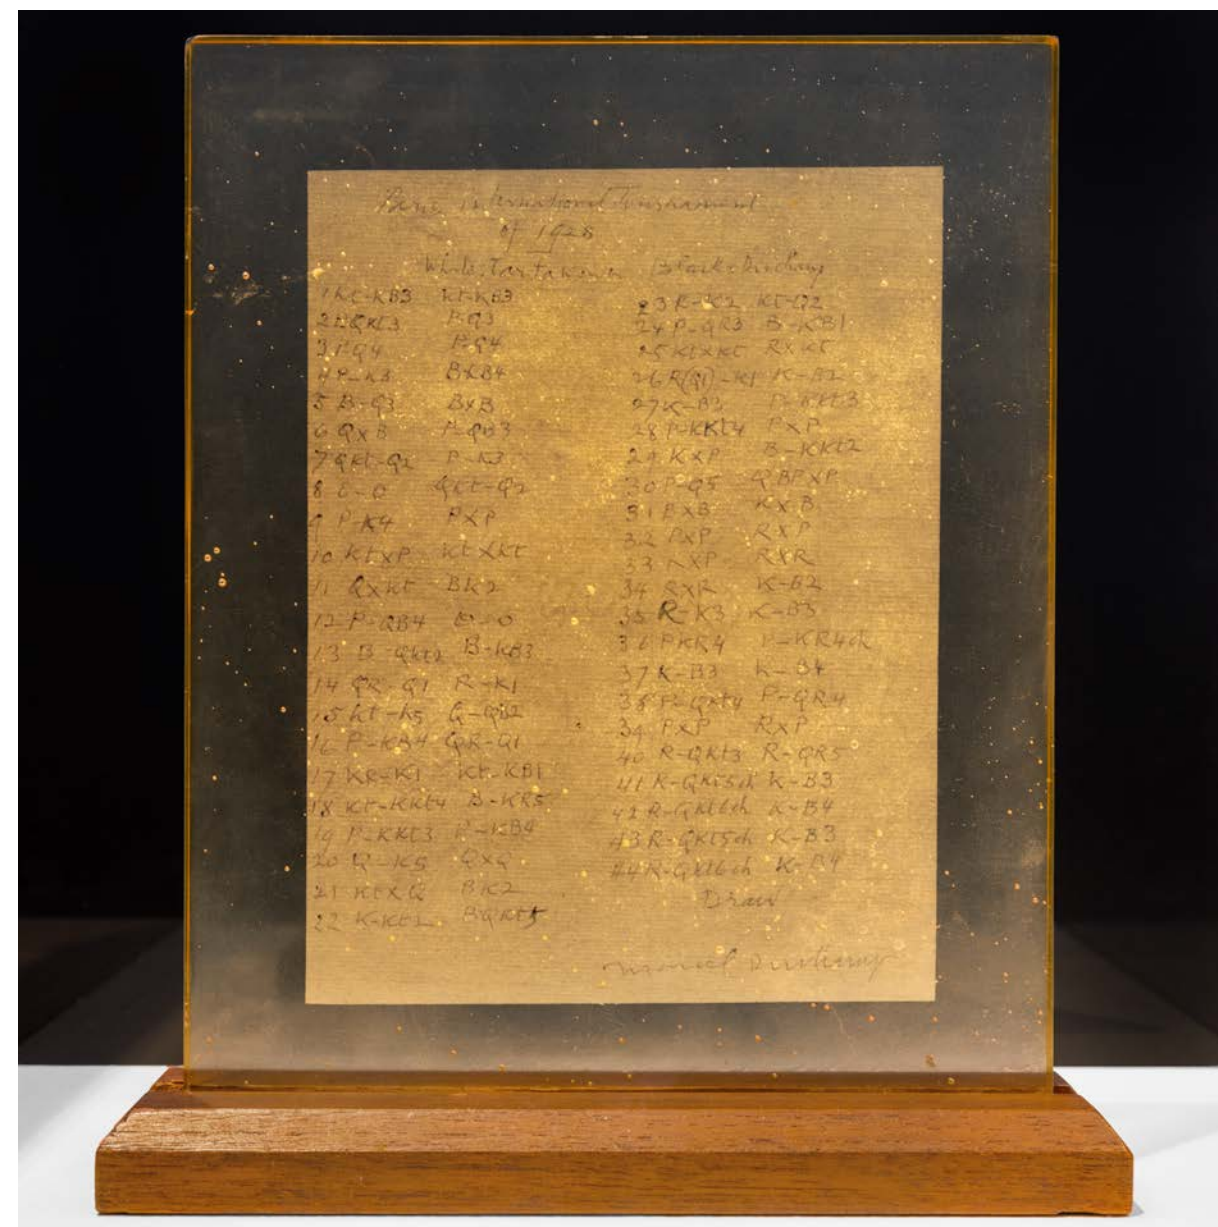 Paris International Tournament
of 1928
White: Tartakower Black: Duchamp
1 Kt-KB3 Kt-KB3
2 P-Q3
3 P-Q4 P-Q4
4 P-K3 B-KB4
5 B-Q3 BxB
6 QxB P-QB3
7 QKt-Q2 P-K3
8 O-O QKt-Q2
9 P-K4 PxP
10 KtxP KtxKt
11 QxKt BK2
12 P-QB4 O-O
13 B-QKt2 B-KB3
14 QR-Q1 R-K1
15 Kt-K5 Q-QB2
16 P-KB4 QR-Q1
17 KR-K1 Kt-KB1
18 Kt-KKt4 B-KR5
19 P-KKt3 P-KB4
20 Q-K5 QxQ
21 KtxQ BK2
22 K-Kt2 BQKt5
23 R-K2 Kt-Q2
24 P-QR3 B-KB1
25 KtxKt RxKt
26 R(Q1)-K1 K-B2
27 K-B3 P-KKt3
28 P-KKt4 PxP
29 KxP B-KKt2
30 P-Q5 QBPxP
31 BxB KxB
32 PxP RxP
33 RxP RxR
34 RxR K-B2
35 R-K3 K-B3
36 PKR4 P-KR4ch
37 K-B3 K-B4
38 P-QKt4 P-QR4
39 PxP RxP
40 R-QKt3 R-QR5
41 R-QKt5ch K-B3
42 R-QKt6ch K-B4
43 R-QKt5ch K-B3
44 R-QKt6ch K-B4
Draw
Marcel Duchamp